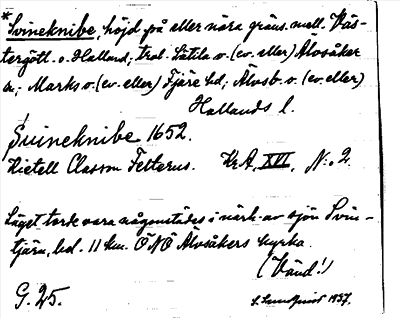 * Svineknibe, höjd på eller nära gräns mell. Väs-
tergötl. o. Halland; trol. Sätila o. (ev. eller) Älvsåker
sn; Marks o. (ev. eller) Fjäre hd; Älvsb. o. (ev. eller)
Hallands l.
Svineknibe 1652.
Kietell Classon Felterus. Kr A, XVI, N:o 2.
Läget torde vara någonstädes i närh. av sjön Svin-
tjärn, bel. 11 km. ÖNÖ Älvsåkers kyrka.
(Vänd!)
G. 25.
S. Lundquist 1937.